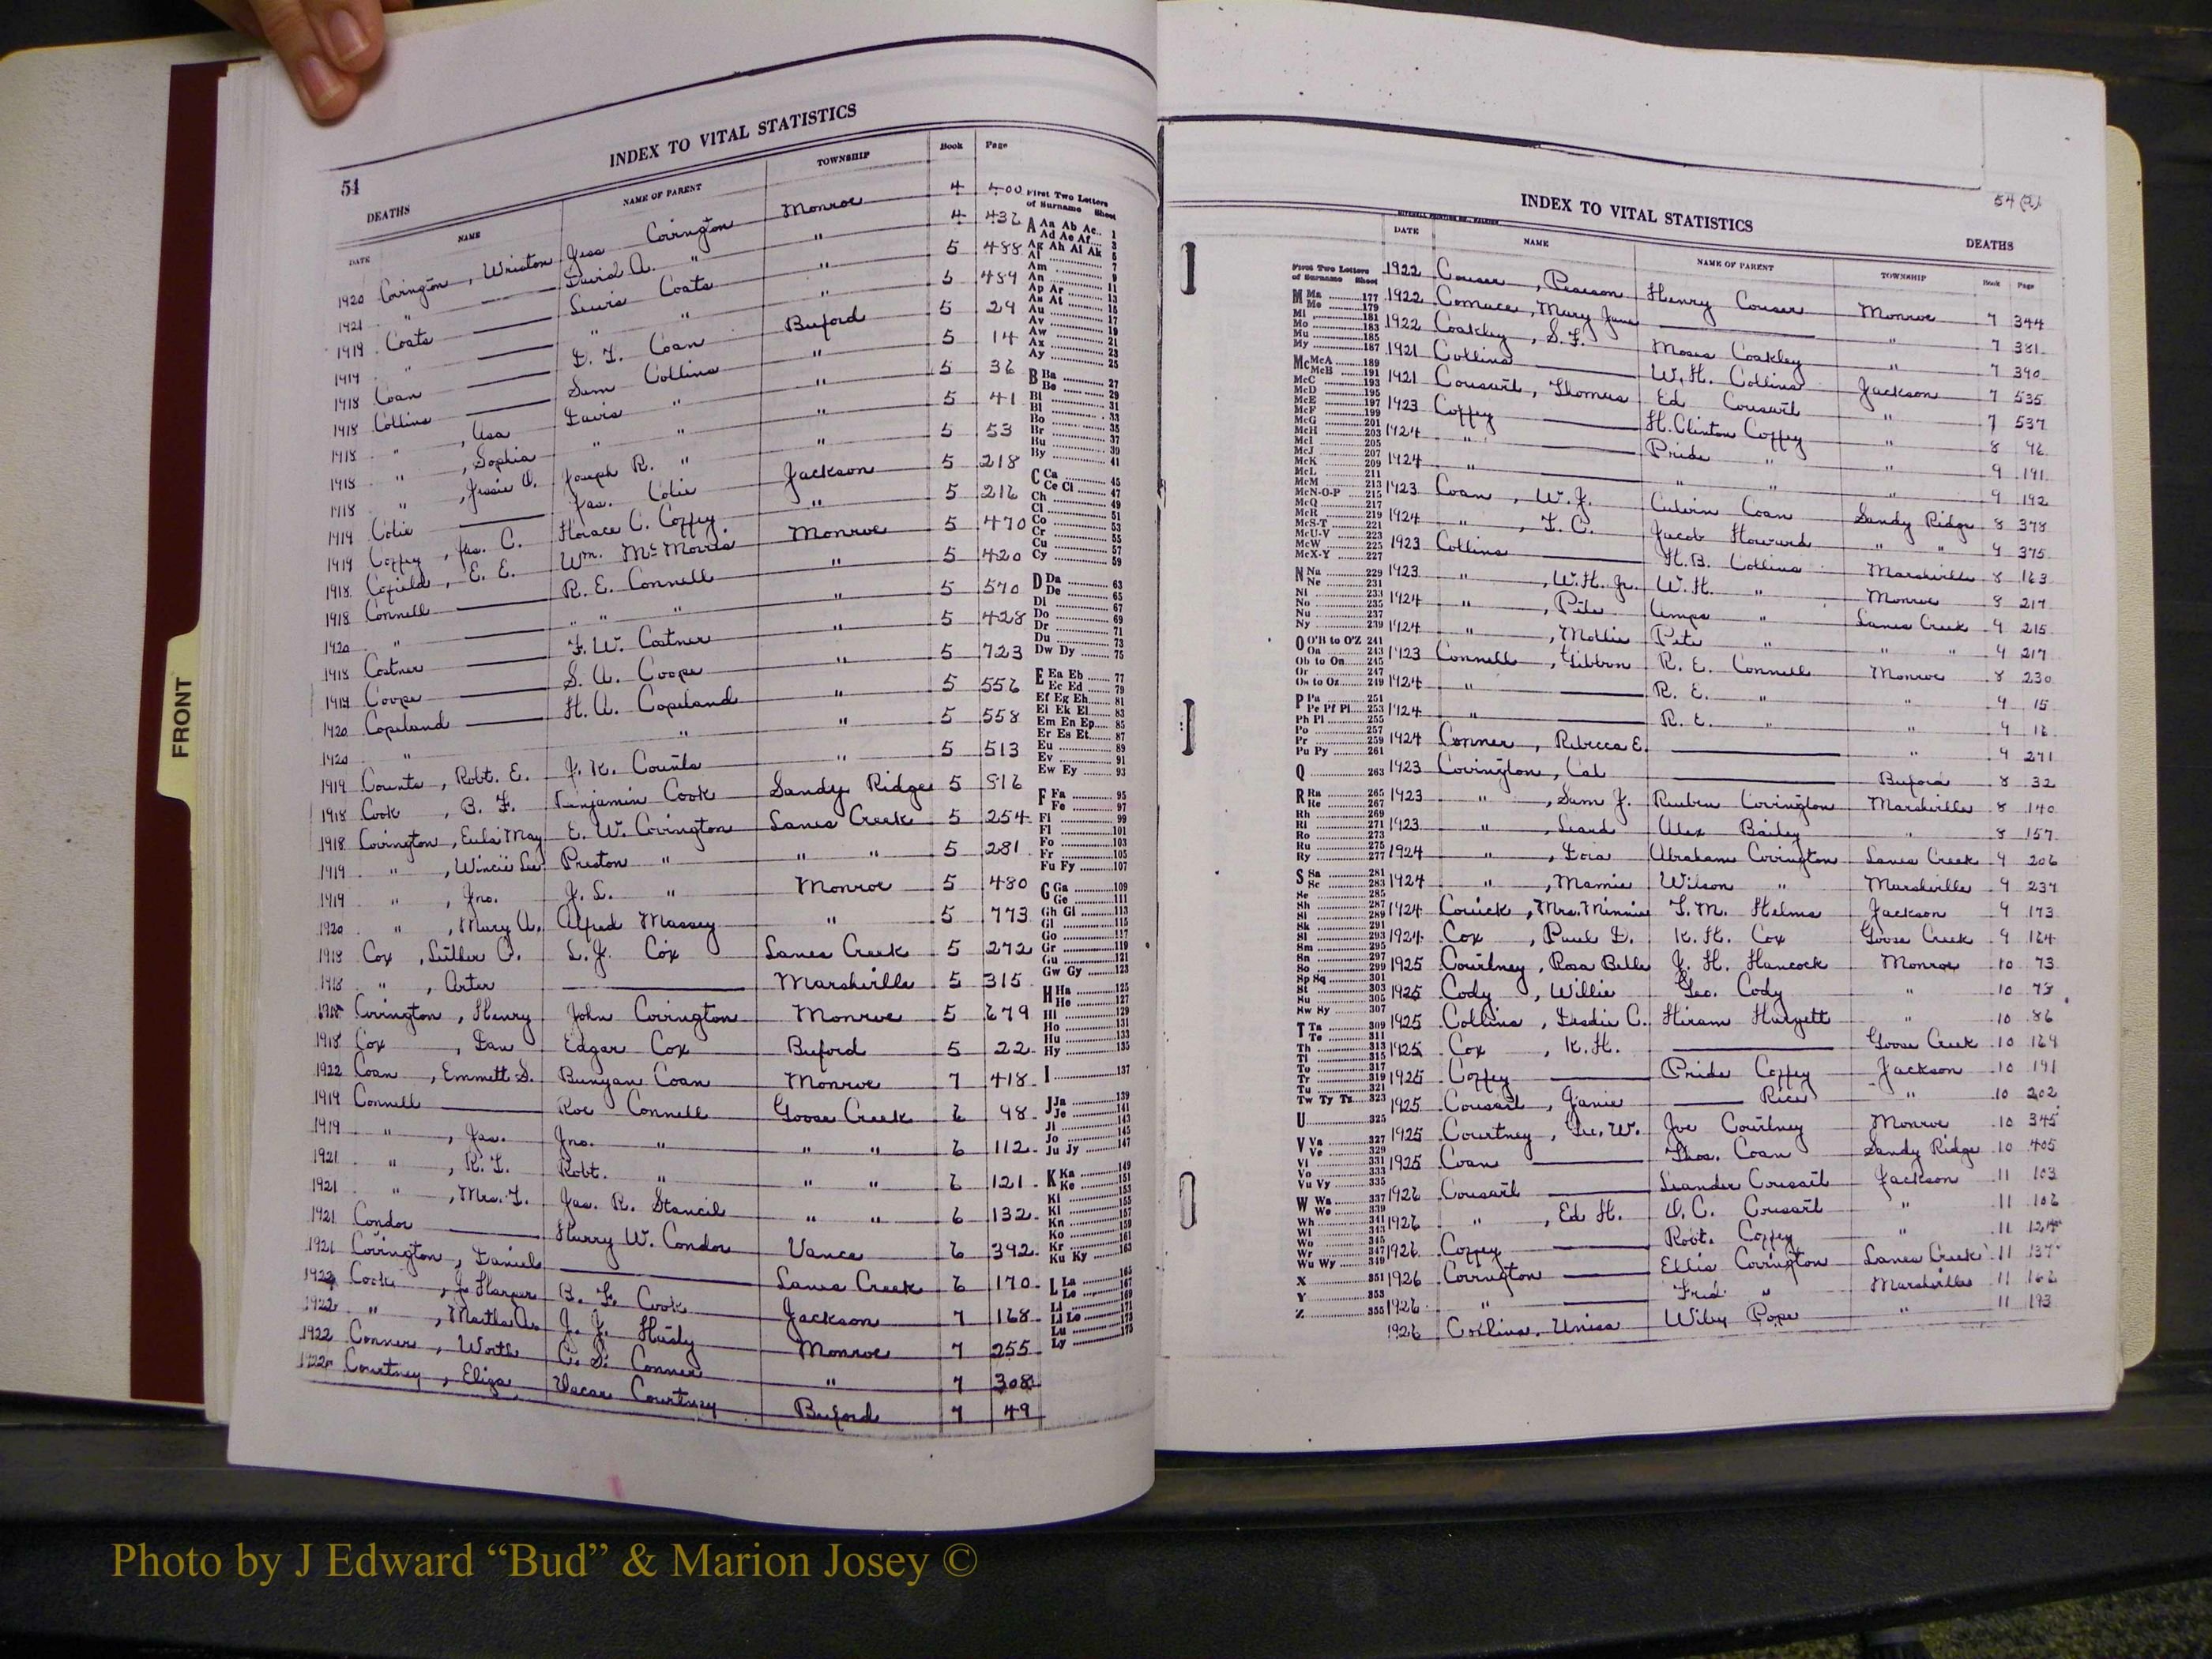 INDEX TO VITAL STATISTICS
54
DEATHS
DATE NAME NAME OF PARENT TOWNSHIP Book Page
1920 Covington, Wriston Jess Covington Monroe 4 400
1921 " — David A. " " 4 432
1919 Coats — Lewis Coats " 5 488
1919 " — " " " 5 489
1918 Coan — D. L. Coan Buford 5 29
1918 Collins — Sam Collins " 5 14
1918 " , Asa Davis " " 5 36
1918 " , Sophia " " " 5 41
1918 " , Jessie O. Joseph R. " " 5 53
1919 Colie — Jas. Colie Jackson 5 218
1919 Coffey, Jas. C. Horace C. Coffey " 5 216
1918 Cofield, E. E. Wm. McMorris Monroe 5 470
1918 Connell — R. E. Connell " 5 420
1920 " — " " " 5 570
1918 Costner — F. W. Costner " 5 428
1919 Coope — S. A. Coope " 5 723
1920 Copeland — H. A. Copeland " 5 556
1920 " " " 5 558
1919 Counts, Robt. E. J. K. Counts " 5 513
1918 Cook, B. F. Benjamin Cook Sandy Ridge 5 516
1918 Covington, Eula May E. W. Covington Lanes Creek 5 254
1919 " , Wincie Lee Preston " " " 5 281
1919 " , Jno. J. L. " Monroe 5 480
1920 " , Mary A. Alfred Massey " 5 773
1918 Cox, Luther C. L. J. Cox Lanes Creek 5 272
1918 " , Arter — Marshville 5 315
Covington, Henry John Covington Monroe 5 679
1918 Cox, Dan Edgar Cox Buford 5 22
1922 Coan, Emmett S. Bunyan Coan Monroe 7 418
1919 Connell — Roe Connell Goose Creek 6 98
1919 " , Jas. Jno. " " " 6 112
1921 " , R. L. Robt. " " " 6 121
1921 " , Mrs. L. Jas. R. Stancil " " 6 132
1921 Condor — Harry W. Condor Vance 6 392
1921 Covington, Daniel — Lanes Creek 6 170
1922 Cook, J. Harper B. F. Cook Jackson 7 168
1922 " , Martha A. J. J. Monroe 7 255
1922 Conner, Worth C. S. Conner " 7 308
1922 Courtney, Eliza Courtney Buford 7 49
First Two Letters of Surname Sheet
A Aa Ab Ac.. 1
Ad Ae Af.... 3
Ag Ah Ai Ak 5
Al 7
Am 9
An 11
Ap Ar 13
As At 15
Au 17
Av 19
Aw 21
Ax 23
Ay 25
B Ba 27
Be 29
Bi 31
Bl 33
Bo 35
Br 37
Bu 39
By 41
C Ca 45
Ce Ci 47
Ch 49
Cl 51
Co 53
Cr 55
Cu 57
Cy 59
D Da 63
De 65
Di 67
Do 69
Dr 71
Du 73
Dw Dy 75
E Ea Eb 77
Ec Ed 79
Ef Eg Eh 81
Ei Ek El 83
Em En Ep 85
Er Es Et 87
Eu 89
Ev 91
Ew Ey 93
F Fa 95
Fe 97
Fi 99
Fl 101
Fo 103
Fr 105
Fu Fy 107
G Ga 109
Ge 111
Gh Gi 113
Gl 115
Go 117
Gr 119
Gu 121
Gw Gy 123
H Ha 125
He 127
Hi 129
Ho 131
Hu 133
Hy 135
I 137
J Ja 139
Je 141
Ji 143
Jo 145
Ju Jy 147
K Ka 149
Ke 151
Ki 153
Kl 155
Kn 157
Ko 159
Kr 161
Ku Ky 163
L La 165
Le 167
Li 169
Ll Lo 171
Lu 173
Ly 175
FRONT
54 (2)
INDEX TO VITAL STATISTICS
DEATHS
DATE NAME NAME OF PARENT TOWNSHIP Book Page
1922 Couser, Pearson Henry Couser Monroe 7 344
1922 Comace, Mary Jane — " 7 381
1922 Coakley, S. F. Moses Coakley " 7 390
1921 Collins — W. H. Collins Jackson 7 535
1921 Cousart, Thomas Ed Cousart " 7 537
1923 Coffey — H. Clinton Coffey " 8 96
1924 " — Pride " " 9 191
1924 " — " " " 9 192
1923 Coan, W. J. Calvin Coan Sandy Ridge 8 378
1924 " , L. C. Jacob Howard " " 9 375
1923 Collins — H. B. Collins Marshville 8 163
1923 " , W. H. Jr. W. H. " Monroe 8 217
1924 " , Pete Amps " Lanes Creek 9 215
1924 " , Mollie Pete " " " 9 217
1923 Connell, Gibbon R. E. Connell Monroe 8 230
1924 " — R. E. " " 9 15
1924 " — R. E. " " 9 16
1924 Conner, Rebecca E. — " 9 271
1923 Covington, Cal — Buford 8 32
1923 " , Sam J. Reuben Covington Marshville 8 140
1923 " , Leard Alex Bailey " 8 157
1924 " , Dora Abraham Covington Lanes Creek 9 206
1924 " , Mamie Wilson " Marshville 9 237
1924 Couick, Mrs. Minnie T. M. Helms Jackson 9 173
1924 Cox, Paul D. K. H. Cox Goose Creek 9 164
1925 Courtney, Rosa Belle J. H. Hancock Monroe 10 73
1925 Cody, Willie Geo. Cody " 10 78
1925 Collins, Desdie C. Hiram Hargett " 10 86
1925 Cox, K. H. — Goose Creek 10 169
1925 Coffey — Pride Coffey Jackson 10 191
1925 Cousart, Janie — Rice " 10 202
1925 Courtney, Lee. W. Joe Courtney Monroe 10 345
1925 Coan — Thos. Coan Sandy Ridge 10 405
1926 Cousart — Leander Cousart Jackson 11 103
1926 " , Ed H. D. C. Cousart " 11 106
1926 Coffey — Robt. Coffey " 11
1926 Covington — Ellis Covington Lanes Creek 11 137
1926 " — Fred " Marshville 11 166
1926 Collins, Unisa Wiley Pope " 11 193
First Two Letters of Surname Sheet
M Ma 177
Me 179
Mi 181
Mo 183
Mu 185
My 187
Mc McA 189
McB 191
McC 193
McD 195
McE 197
McF 199
McG 201
McH 203
McI 205
McJ 207
McK 209
McL 211
McM 213
McN-O-P 215
McQ 217
McR 219
McS-T 221
McU-V 223
McW 225
McX-Y 227
N Na 229
Ne 231
Ni 233
No 235
Nu 237
Ny 239
O O'H to O'Z 241
Oa 243
Ob to On 245
Or 247
Os to Oz 249
P Pa 251
Pe Pf Pl 253
Ph Pi 255
Po 257
Pr 259
Pu Py 261
Q 263
R Ra 265
Re 267
Rh 269
Ri 271
Ro 273
Ru 275
Ry 277
S Sa 281
Sc 283
Se 285
Sh 287
Si 289
Sk 291
Sl 293
Sm 295
Sn 297
So 299
Sp Sq 301
St 303
Su 305
Sw Sy 307
T Ta 309
Te 311
Th 313
Ti 315
To 317
Tr 319
Tu 321
Tw Ty Tz 323
U 325
V Va 327
Ve 329
Vi 331
Vo 333
Vu Vy 335
W Wa 337
We 339
Wh 341
Wi 343
Wo 345
Wr 347
Wu Wy 349
X 351
Y 353
Z 355
Photo by J Edward “Bud” & Marion Josey ©